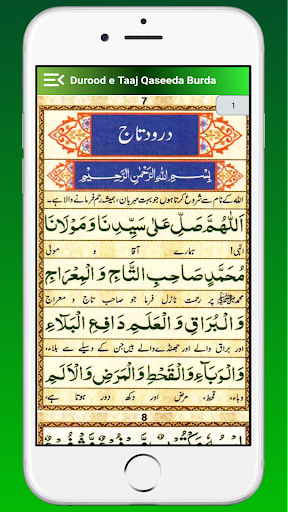 Durood e Taaj Qaseeda Burda
7
1
درود تاج
بِسْمِ اللهِ الرَّحْمٰنِ الرَّحِيْمِ
اللہ کے نام سے شروع کرتا ہوں جو بہت مہربان، ہمیشہ رحم فرمانے والا ہے۔
اَللّٰهُمَّ صَلِّ عَلٰى سَيِّدِنَا وَمَوْلَانَا
الٰہی! ہمارے آقا و مولٰی
مُحَمَّدٍ صَاحِبِ التَّاجِ وَ الْمِعْرَاجِ
محمد ﷺ پر رحمت نازل فرما جو صاحب تاج و معراج
وَالْبُرَاقِ وَ الْعَلَمِ دَافِعِ الْبَلَاءِ
اور براق والے اور جھنڈے والے ہیں جن کے وسیلے سے بلاء،
وَالْوَبَاءِ وَالْقَحْطِ وَالْمَرَضِ وَالْاَلَمِ
وباء، قحط، مرض اور دکھ دور ہوتا ہے،
8